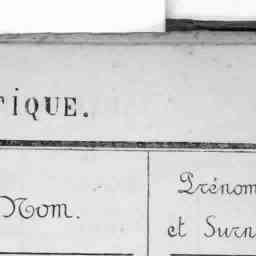 TIQUE.
Nom.
Prénom
et Surn